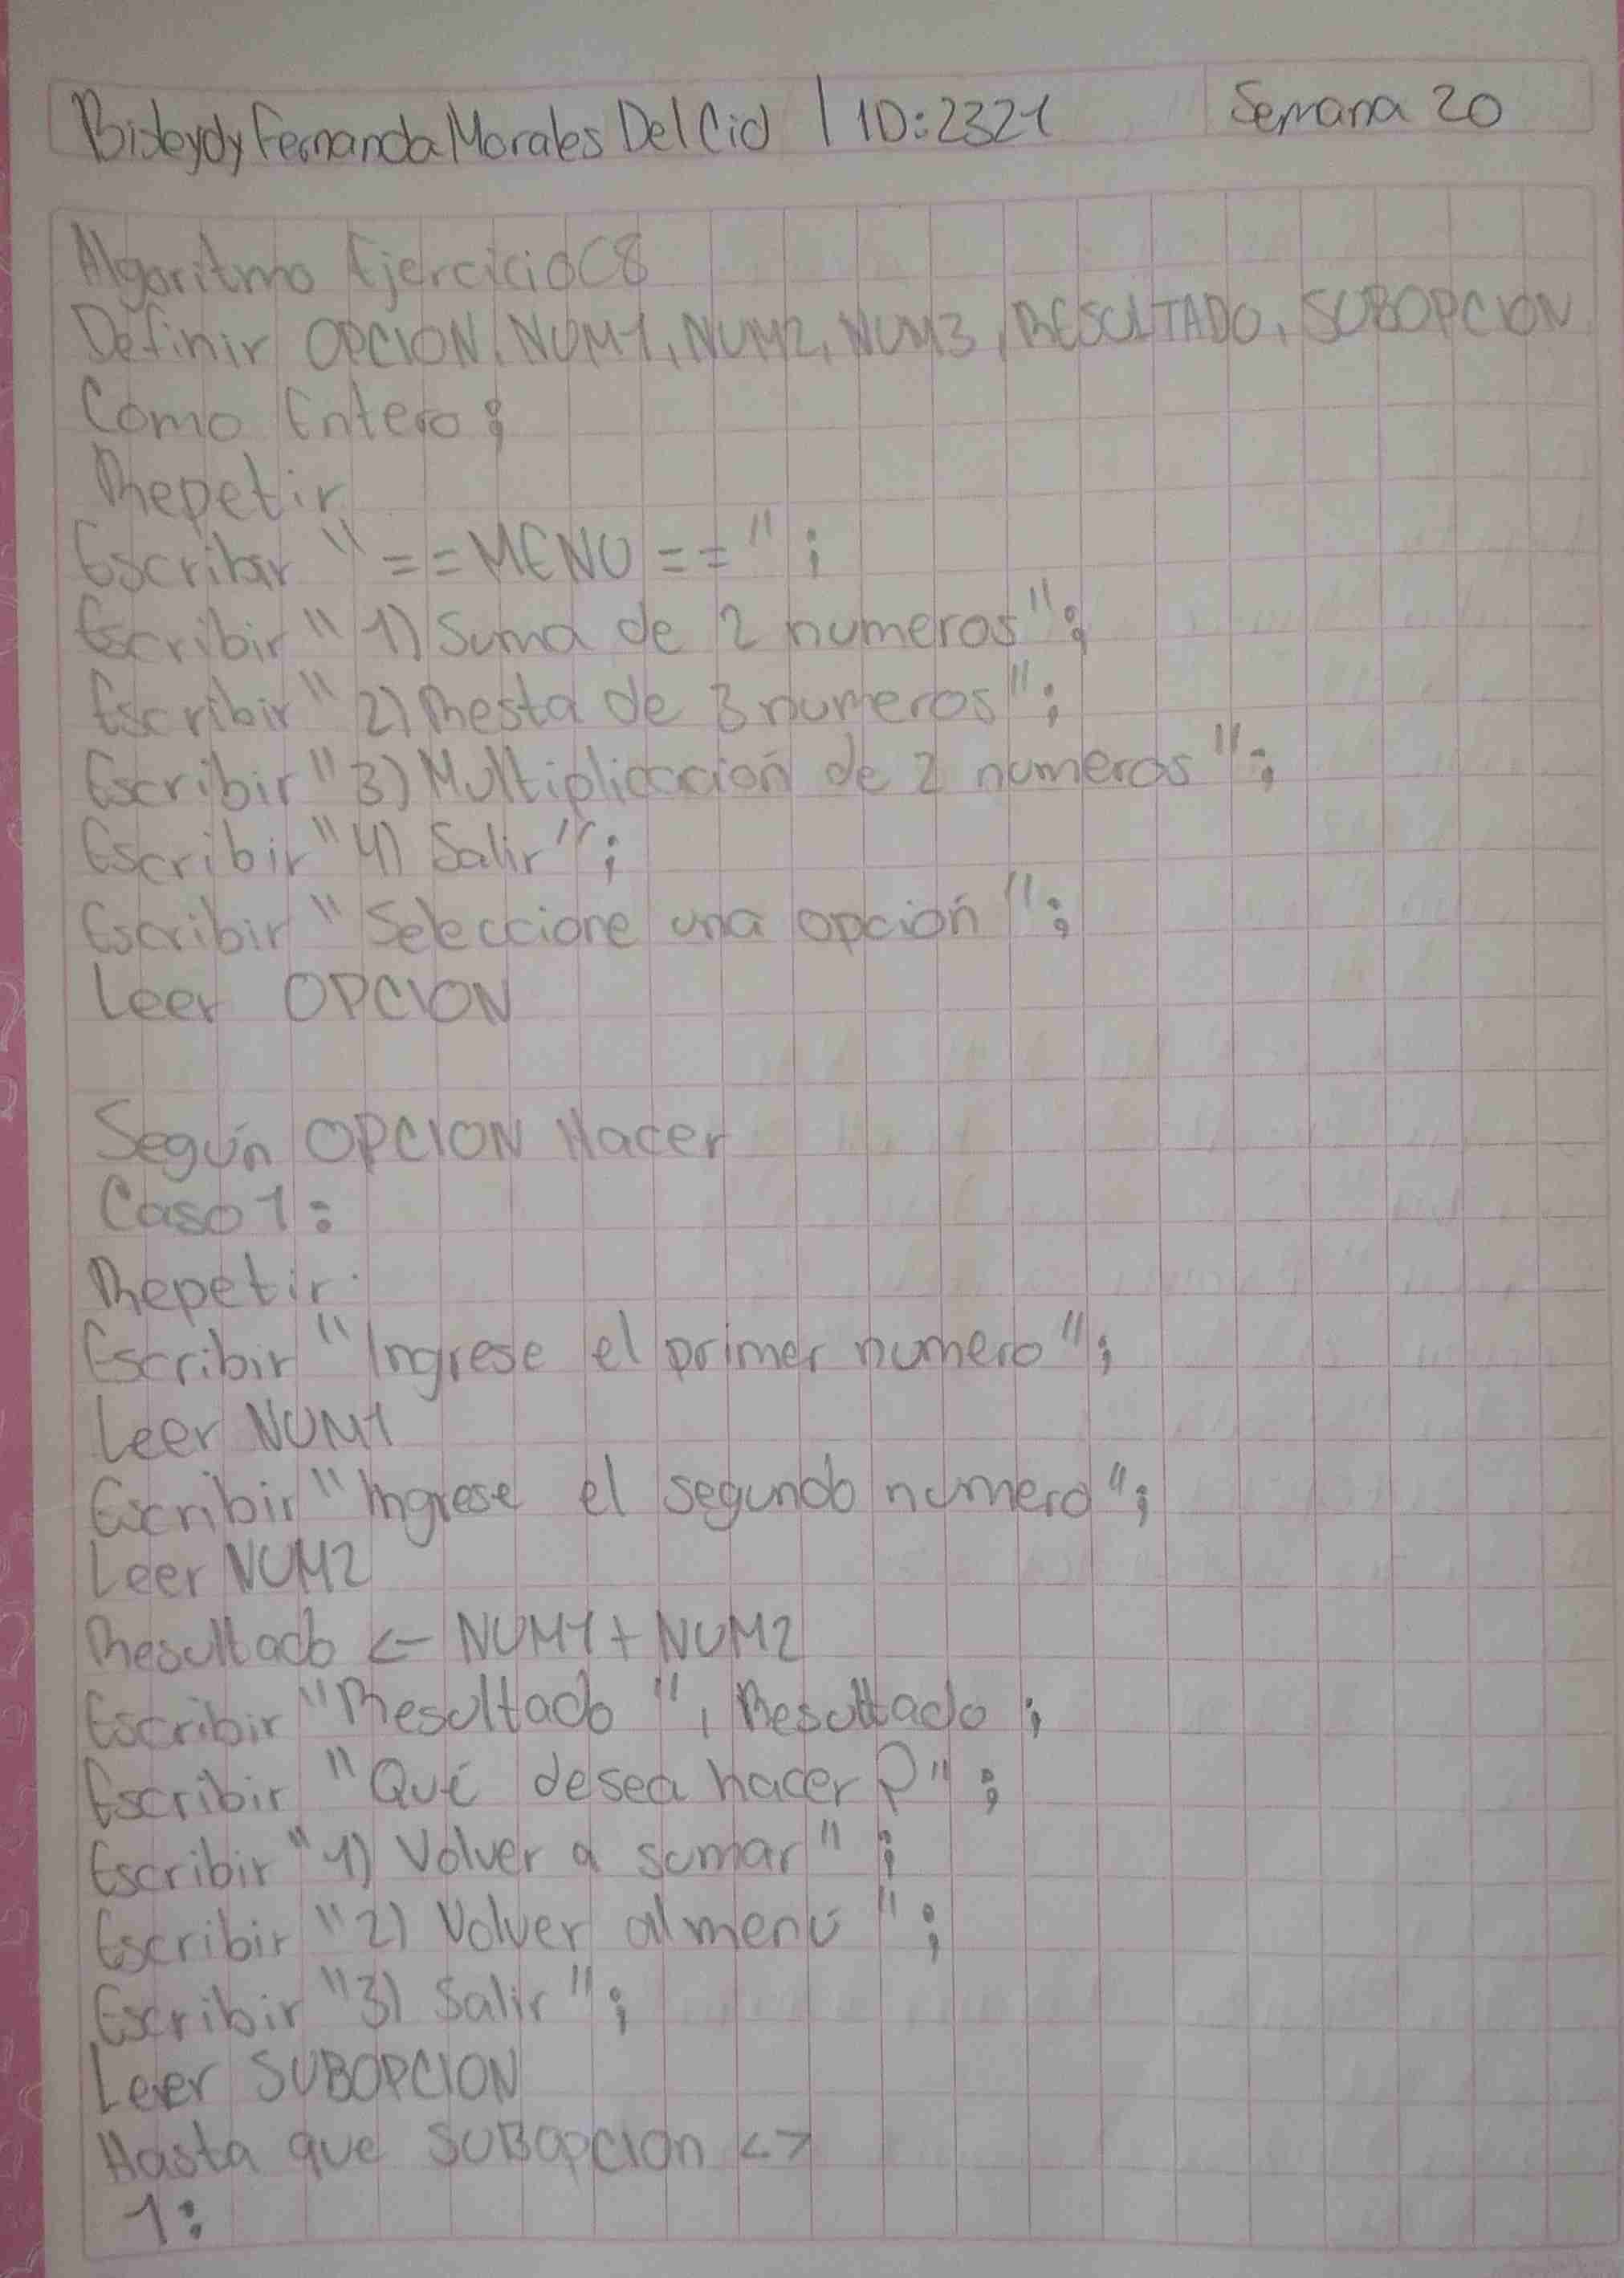 Bisleydy Fernanda Morales Del Cid | ID:2321 Semana 20
Algoritmo EjercicioC8
Definir OPCION, NUM1, NUM2, NUM3, RESULTADO, SUBOPCION
Como Entero;
Repetir
Escribir "==MENU==";
Escribir "1) Suma de 2 numeros";
Escribir "2) Resta de 3 numeros";
Escribir "3) Multiplicación de 2 numeros";
Escribir "4) Salir";
Escribir "Seleccione una opción";
Leer OPCION
Según OPCION Hacer
Caso 1:
Repetir
Escribir "Ingrese el primer numero";
Leer NUM1
Escribir "Ingrese el segundo numero";
Leer NUM2
Resultado <- NUM1 + NUM2
Escribir "Resultado", Resultado;
Escribir "Qué desea hacer?";
Escribir "1) Volver a sumar";
Escribir "2) Volver al menú";
Escribir "3) Salir";
Leer SUBOPCION
Hasta que SUBopcion <>
1: